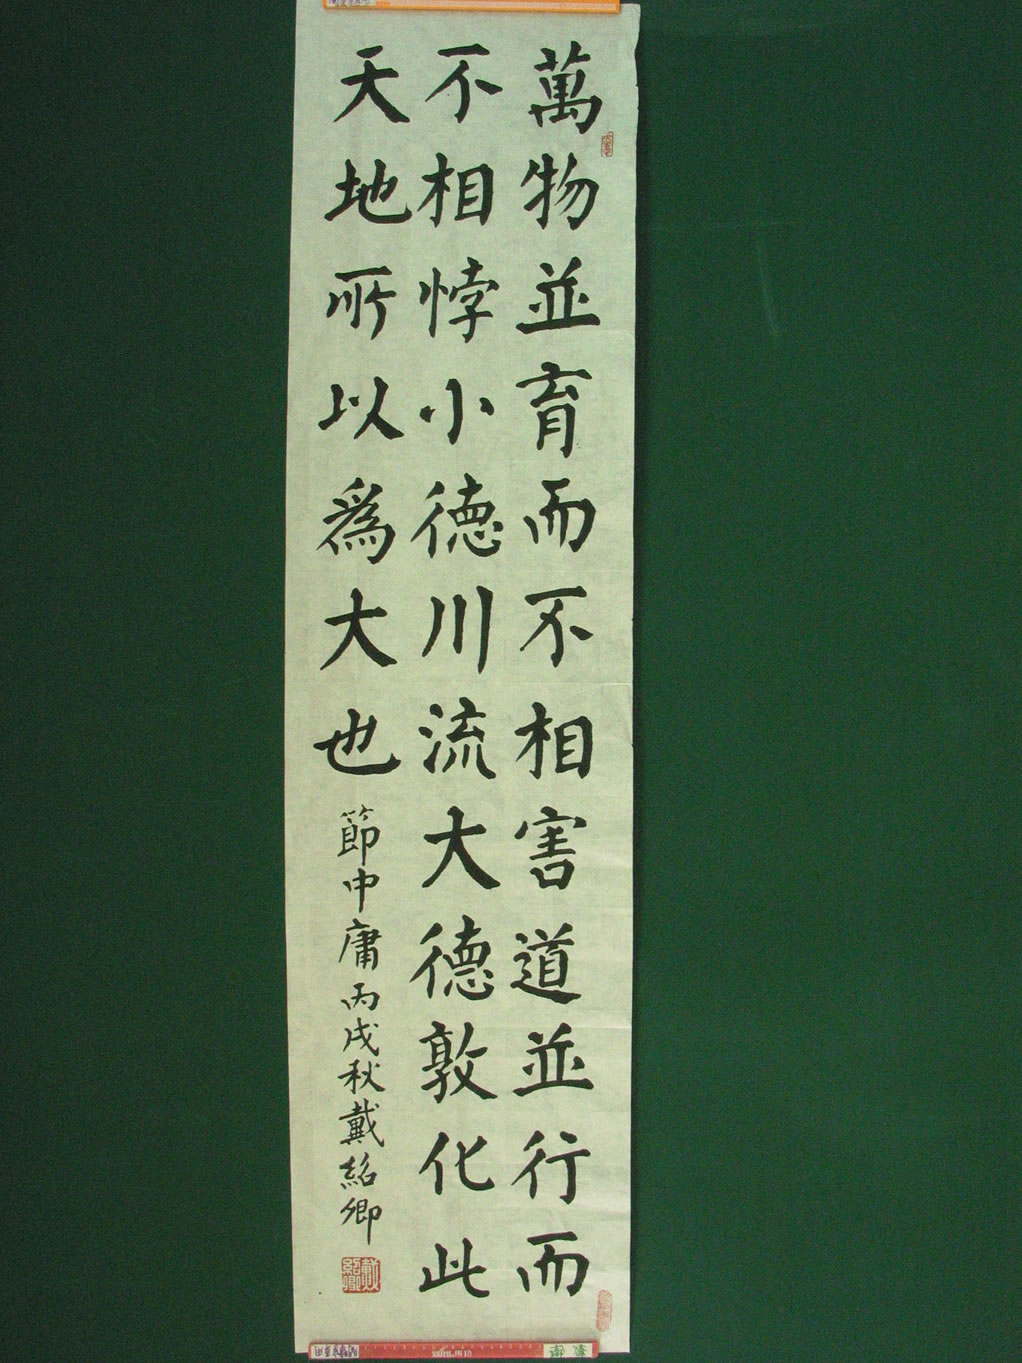 萬物並育而不相害道並行而
不相悖小德川流大德敦化此
天地所以爲大也
節中庸丙戌秋戴紹卿